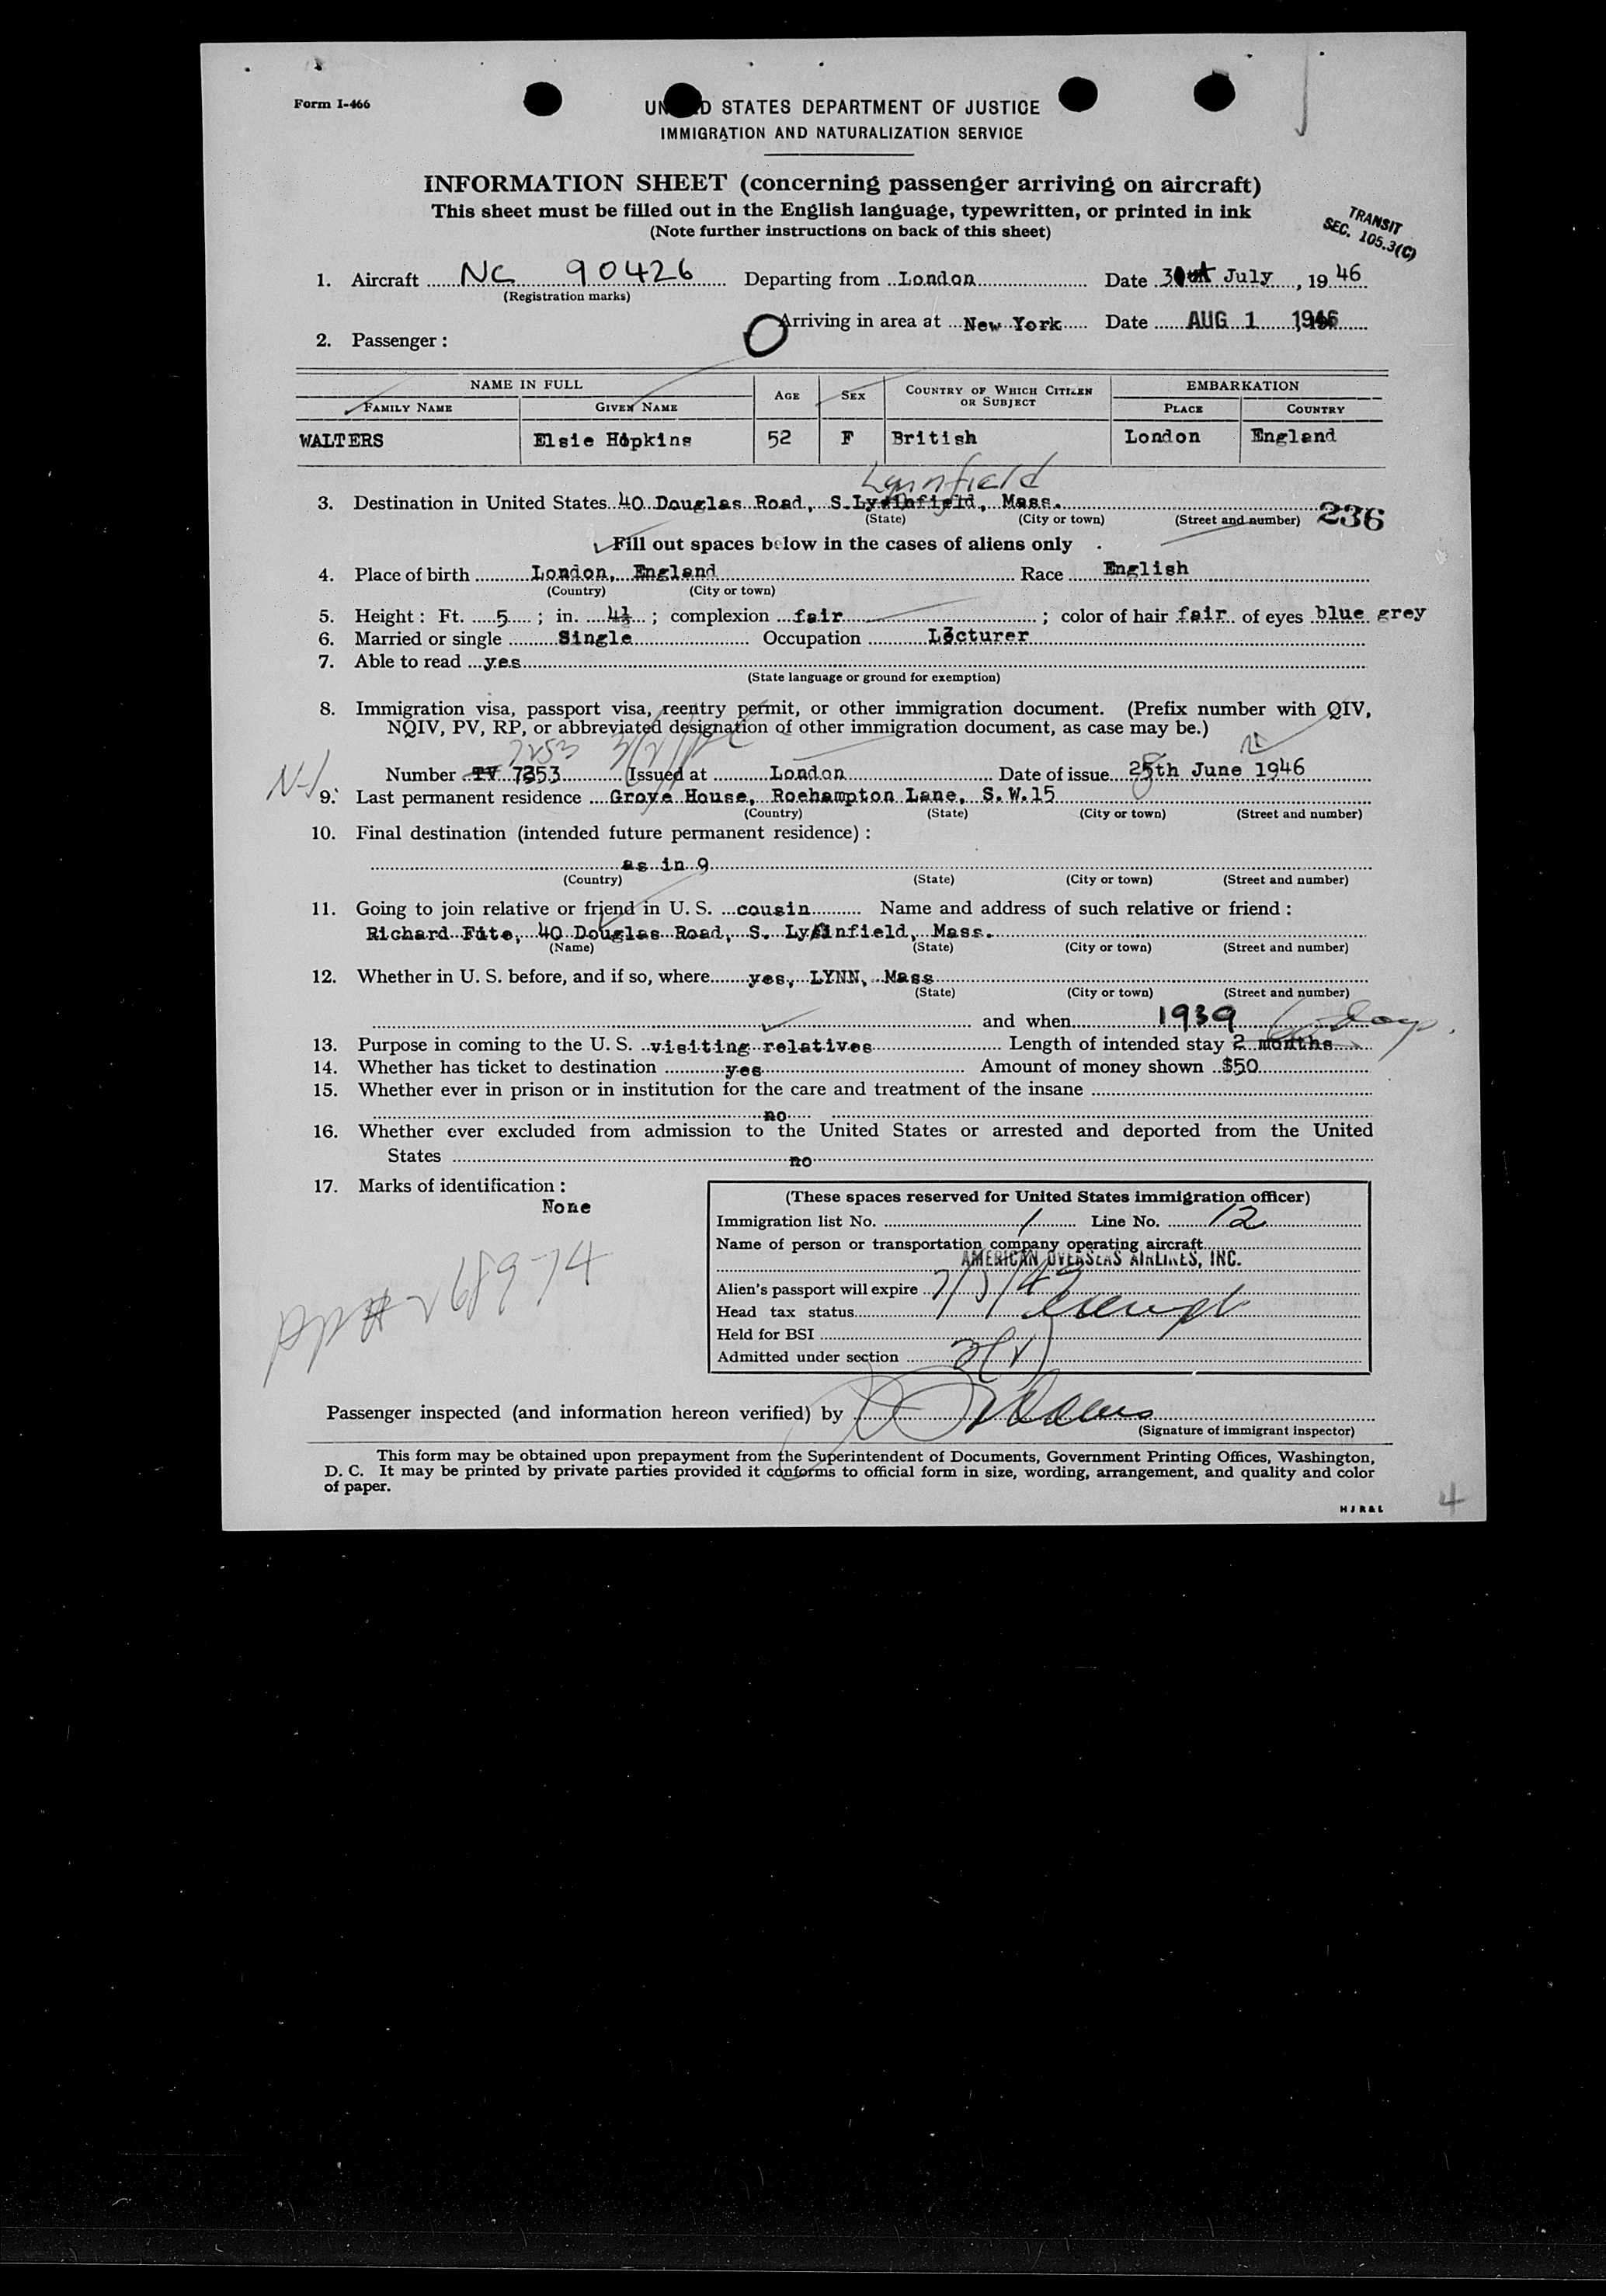 Form I-466
UNITED STATES DEPARTMENT OF JUSTICE
IMMIGRATION AND NATURALIZATION SERVICE
INFORMATION SHEET (concerning passenger arriving on aircraft)
This sheet must be filled out in the English language, typewritten, or printed in ink
(Note further instructions on back of this sheet)
TRANSIT
SEC. 105.3(C)
1. Aircraft NC 90426 Departing from London Date July, 1946
(Registration marks)
Arriving in area at New York Date AUG 1 1946
2. Passenger :
NAME IN FULL AGE SEX COUNTRY OF WHICH CITIZEN OR SUBJECT EMBARKATION
FAMILY NAME GIVEN NAME PLACE COUNTRY
WALTERS Elsie Hopkins 52 F British London England
Lynnfield
3. Destination in United States 40 Douglas Road, S. Mass.
(State) (City or town) (Street and number) 236
Fill out spaces below in the cases of aliens only
4. Place of birth London, England Race English
(Country) (City or town)
5. Height : Ft. 5 ; in. 4½ ; complexion fair ; color of hair fair of eyes blue grey
6. Married or single Single Occupation Lecturer
7. Able to read yes
(State language or ground for exemption)
8. Immigration visa, passport visa, reentry permit, or other immigration document. (Prefix number with QIV,
NQIV, PV, RP, or abbreviated designation of other immigration document, as case may be.)
7253 3(2)
Number TV 7353 Issued at London Date of issue 25th June 1946
9. Last permanent residence Grove House, Roehampton Lane, S.W.15
(Country) (State) (City or town) (Street and number)
10. Final destination (intended future permanent residence) :
as in 9
(Country) (State) (City or town) (Street and number)
11. Going to join relative or friend in U. S. cousin Name and address of such relative or friend :
Richard 40 Douglas Road, S. Mass.
(Name) (State) (City or town) (Street and number)
12. Whether in U. S. before, and if so, where yes, LYNN, Mass
(State) (City or town) (Street and number)
and when 1939 60 days.
13. Purpose in coming to the U. S. visiting relatives Length of intended stay 2 months
14. Whether has ticket to destination yes Amount of money shown $50
15. Whether ever in prison or in institution for the care and treatment of the insane
no
16. Whether ever excluded from admission to the United States or arrested and deported from the United
States no
17. Marks of identification :
None
pp# 268974
(These spaces reserved for United States immigration officer)
Immigration list No. 1 Line No. 12
Name of person or transportation company operating aircraft
AMERICAN OVERSEAS AIRLINES, INC.
Alien's passport will expire
Head tax status exempt
Held for BSI
Admitted under section 3(2)
Passenger inspected (and information hereon verified) by
(Signature of immigrant inspector)
This form may be obtained upon prepayment from the Superintendent of Documents, Government Printing Offices, Washington,
D. C. It may be printed by private parties provided it conforms to official form in size, wording, arrangement, and quality and color
of paper.
H J R & L 4